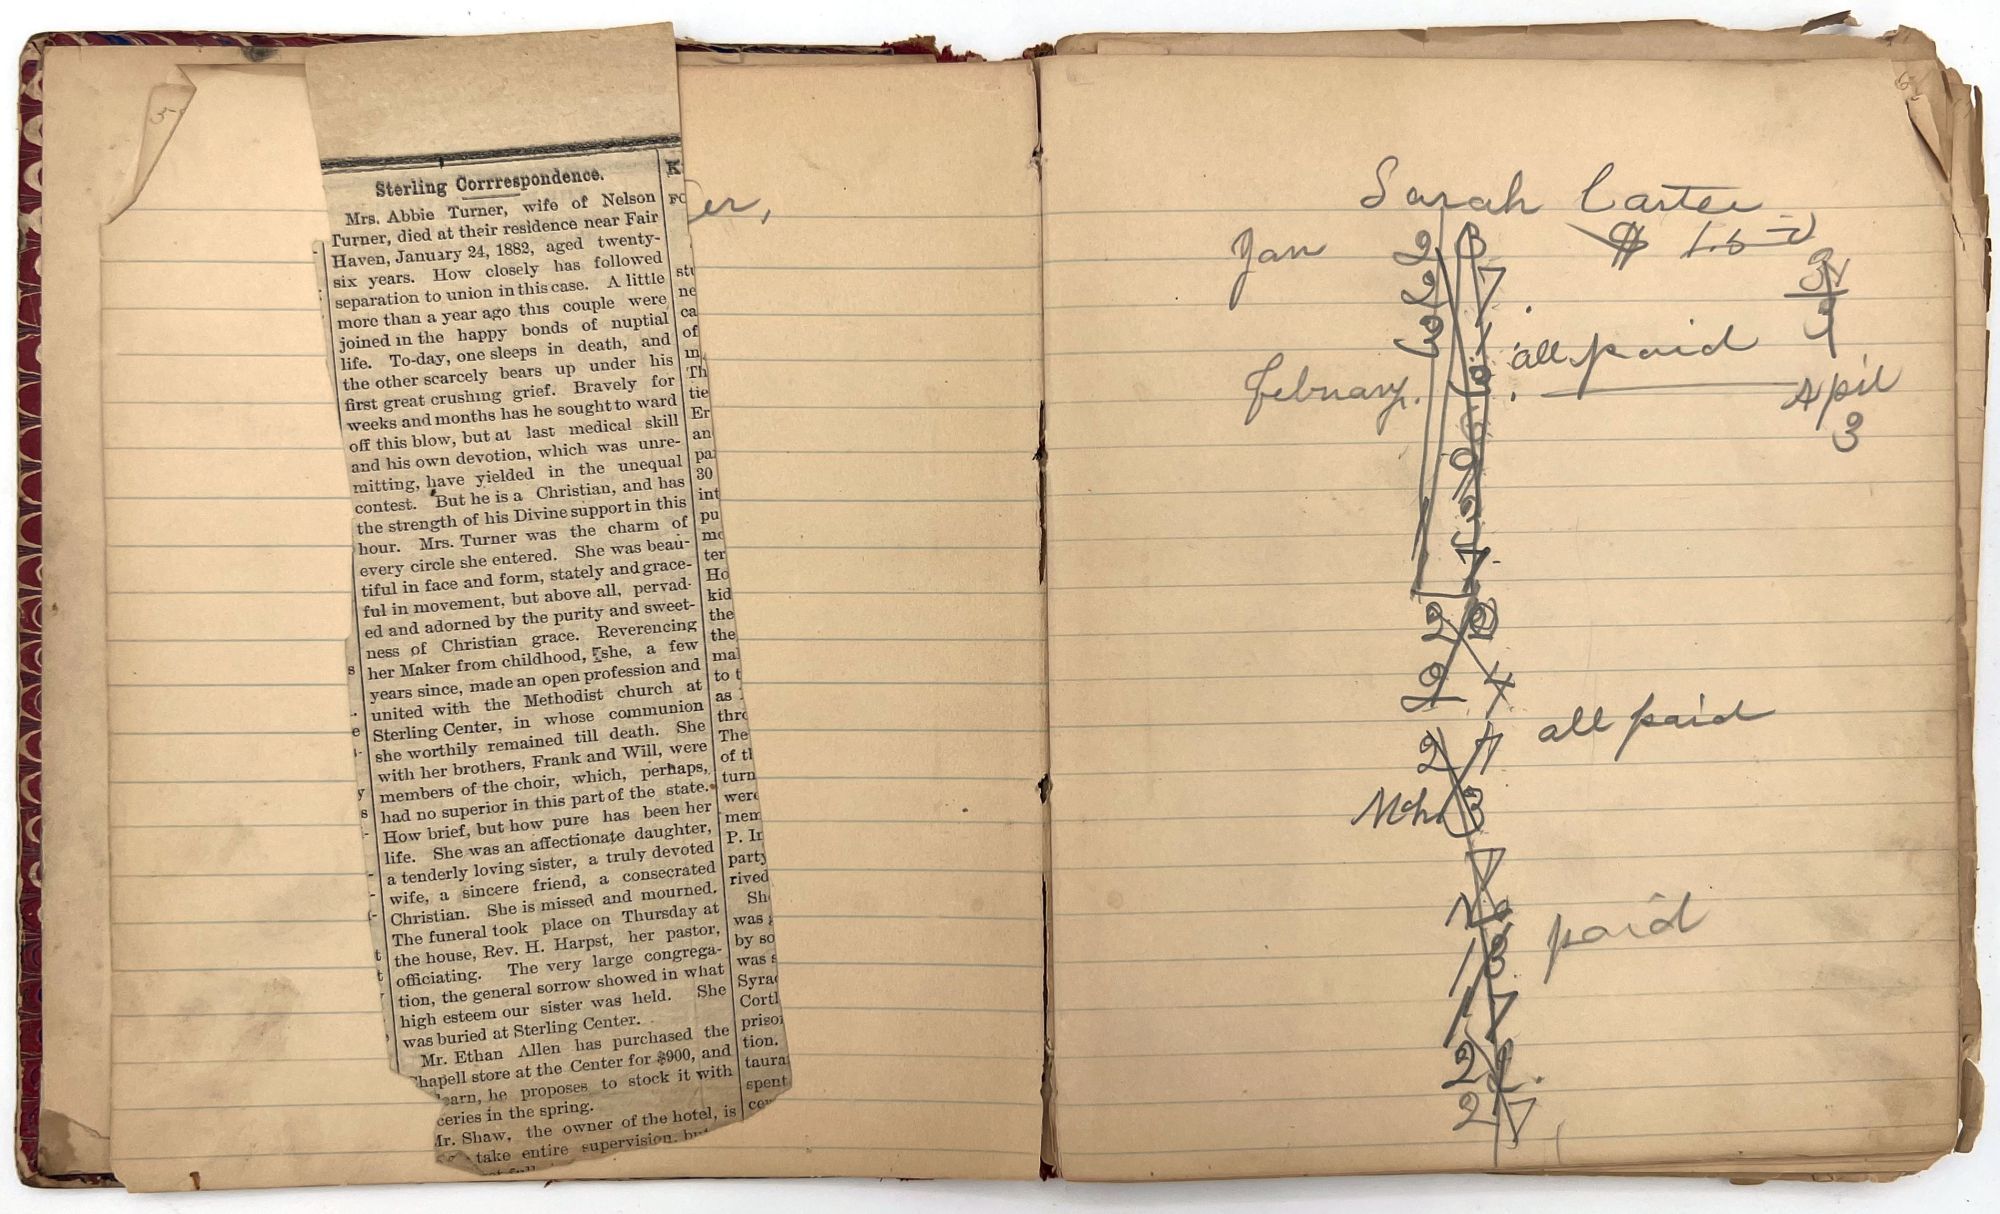 Sterling Corrrespondence.
Mrs. Abbie Turner, wife of Nelson
Turner, died at their residence near Fair
Haven, January 24, 1882, aged twenty-
six years. How closely has followed
separation to union in this case. A little
more than a year ago this couple were
joined in the happy bonds of nuptial
life. To-day, one sleeps in death, and
the other scarcely bears up under his
first great crushing grief. Bravely for
weeks and months has he sought to ward
off this blow, but at last medical skill
and his own devotion, which was unre-
mitting, have yielded in the unequal
contest. But he is a Christian, and has
the strength of his Divine support in this
hour. Mrs. Turner was the charm of
every circle she entered. She was beau-
tiful in face and form, stately and grace-
ful in movement, but above all, pervad-
ed and adorned by the purity and sweet-
ness of Christian grace. Reverencing
her Maker from childhood, she, a few
years since, made an open profession and
united with the Methodist church at
Sterling Center, in whose communion
she worthily remained till death. She
with her brothers, Frank and Will, were
members of the choir, which, perhaps,
had no superior in this part of the state.
How brief, but how pure has been her
life. She was an affectionate daughter,
a tenderly loving sister, a truly devoted
wife, a sincere friend, a consecrated
Christian. She is missed and mourned.
The funeral took place on Thursday at
the house, Rev. H. Harpst, her pastor,
officiating. The very large congrega-
tion, the general sorrow showed in what
high esteem our sister was held. She
was buried at Sterling Center.
Mr. Ethan Allen has purchased the
Chapell store at the Center for $900, and
learn, he proposes to stock it with
ceries in the spring.
Mr. Shaw, the owner of the hotel, is
take entire supervision, but
K
FO
stu
ne
ca
of
in
Th
tie
Er
an
pa
30
int
pu
mo
ter
Ho
kid
the
the
mal
to t
as
thro
The
of th
turn
were
mem
P. Ir
party
rived
She
was
by so
was s
Syra
Cortl
priso
tion.
taura
spent
er,
Sarah Carter
Jan 23
27
31
all paid
February.
6
9
April
3
7
22
24
27
all paid
Mch 3
7
10
paid
13
17
21.
27